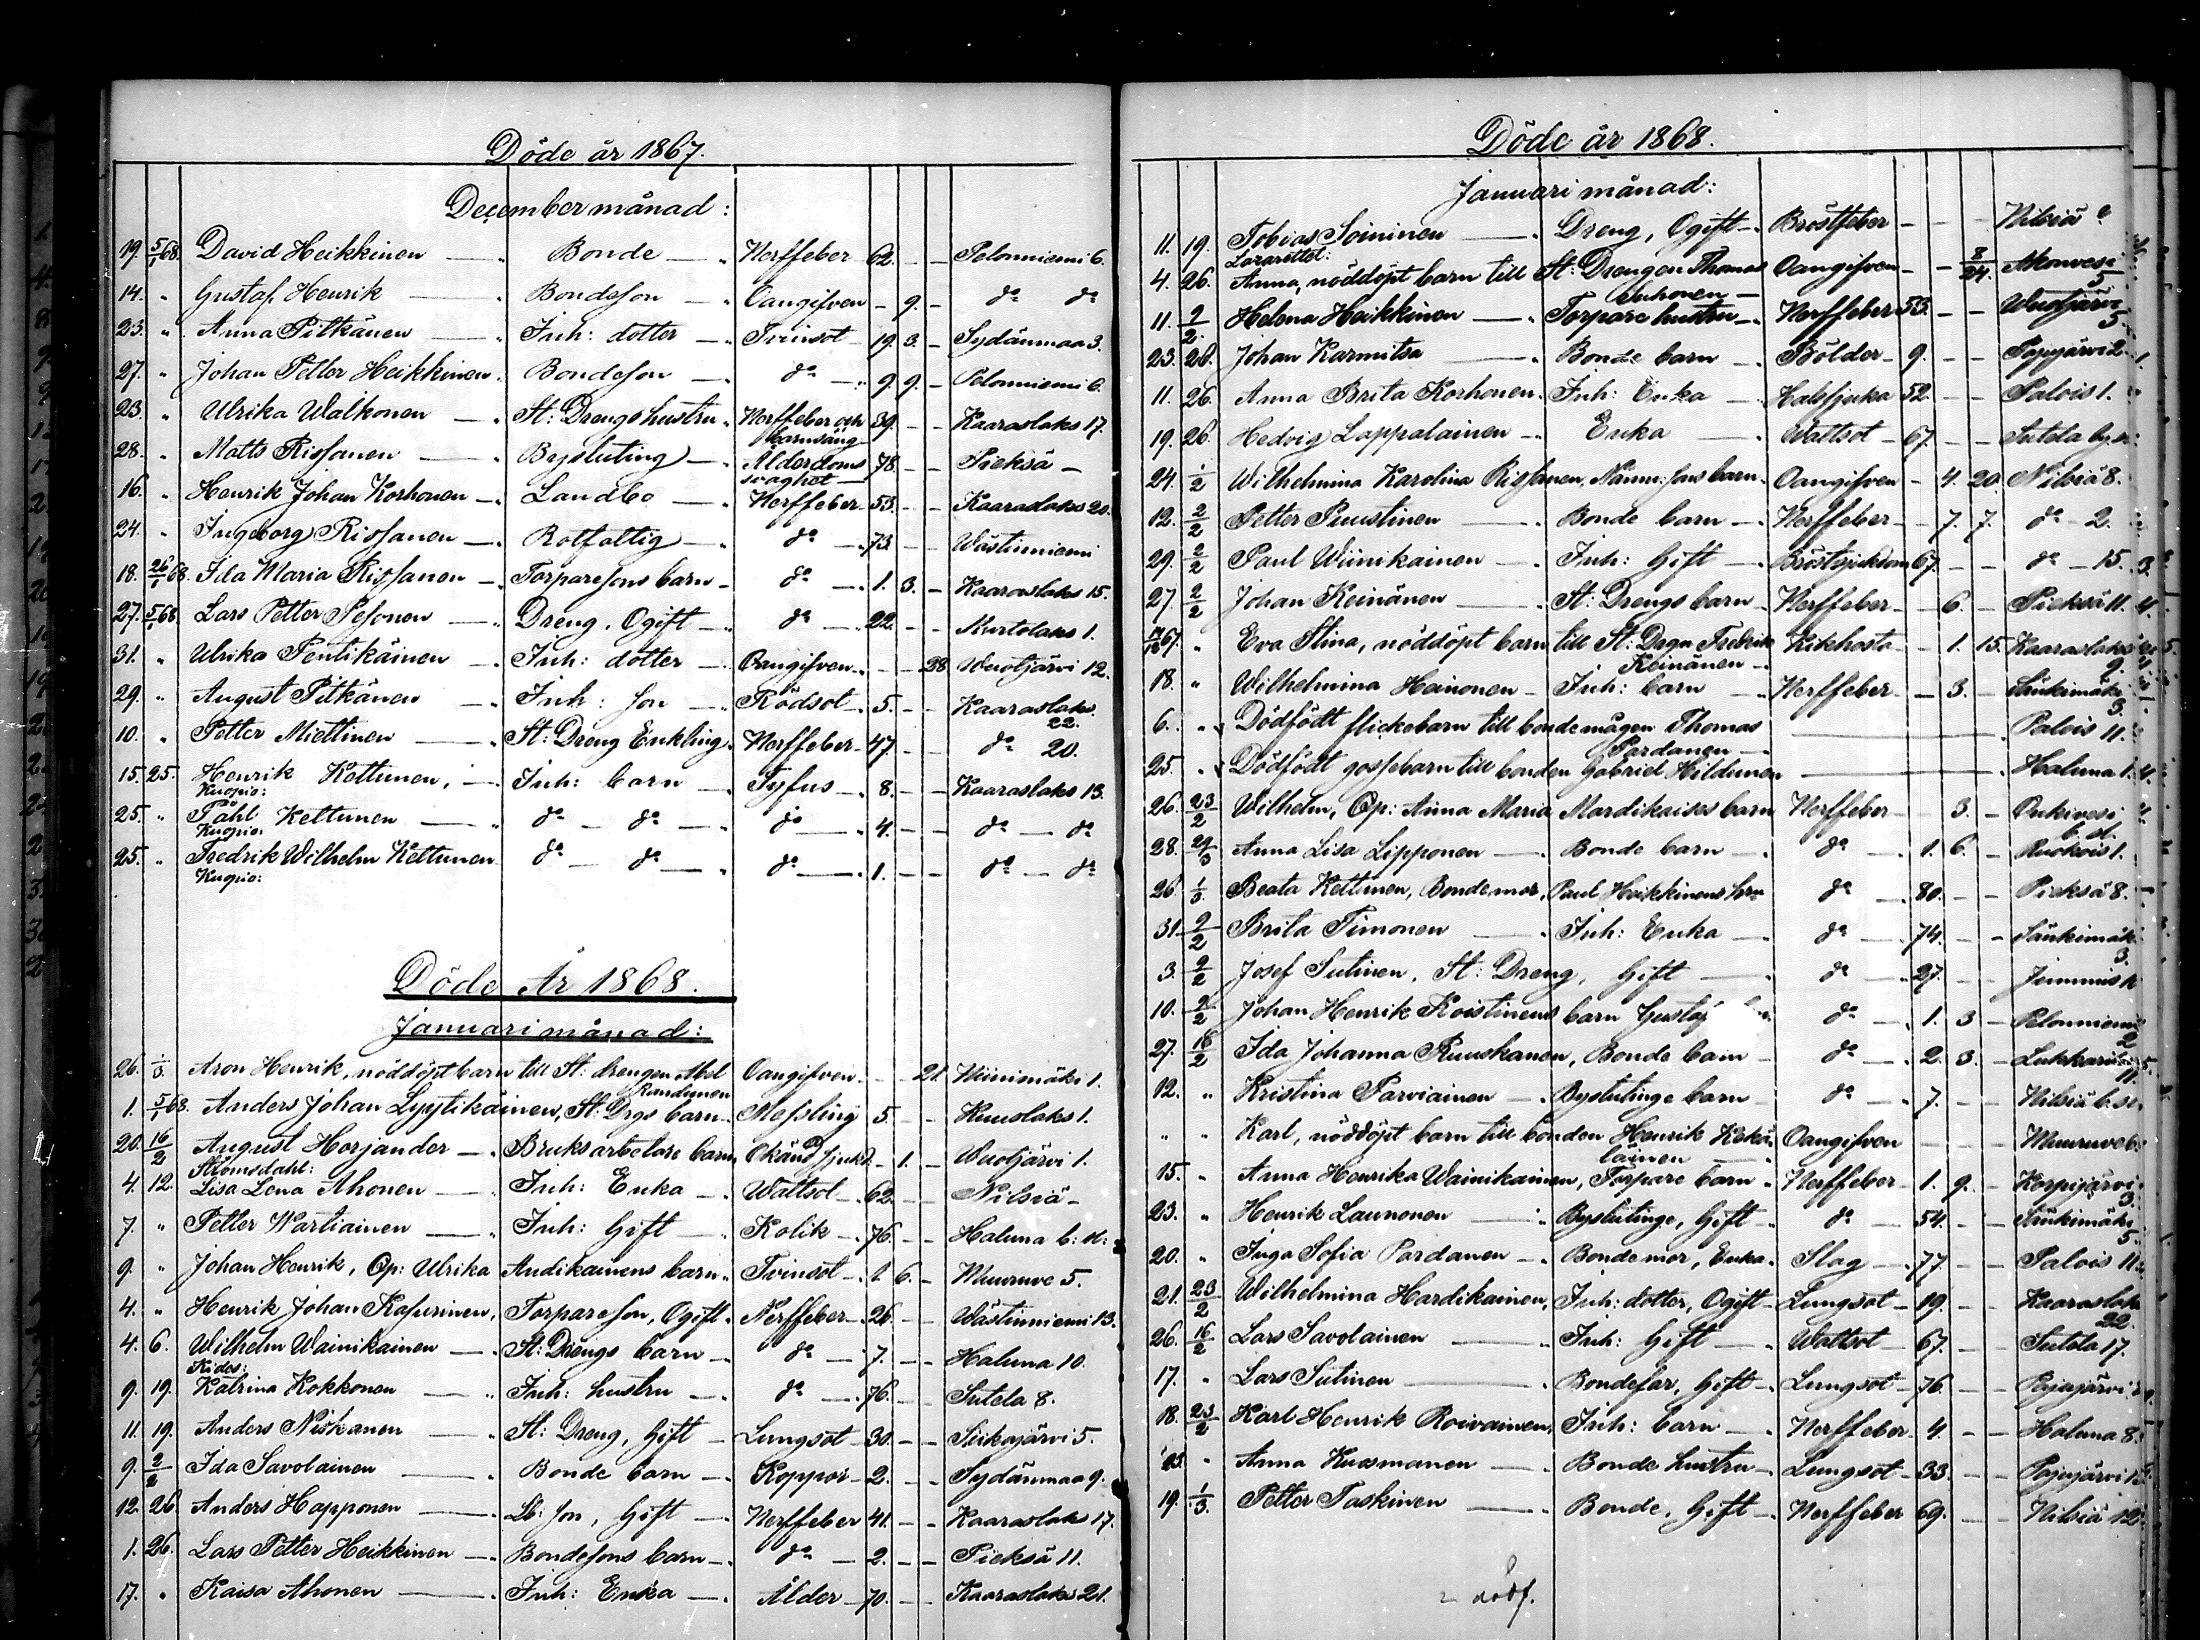 Döde år 1867.
December månad:
19. 5/1 68. David Heikkinen — Bonde — Nerffeber 62. - - Pelonniemi 6.
14. " Gustaf Henrik — Bondeson — Oangifven - 9. - do do
23. " Anna Pitkänen — Inh: dotter — Tvinsot 19. 3. - Sydänmaa 3.
27. " Johan Petter Heikkinen. Bondeson — do — 9. 9. - Pelonniemi 6.
23. " Ulrika Walkonen — St: Drengs hustru Nerffeber och 39. - - Kaaraslaks 17.
barnsäng
28. " Matts Rissanen — Bysluting — Ålderdoms 78. - - Pieksä -
svaghet
16. " Henrik Johan Korhonen — Landbo — Nerffeber 53. - - Kaaraslaks 20.
24. " Ingeborg Rissanen — Rotfattig — do — 73. - - Wästinniemi
18. 26/1 68. Ida Maria Rissanen — Torparesons barn — do — 1. 3. - Kaaraslaks 15.
27. 5/1 68 Lars Petter Pesonen — Dreng, Ogift — do — 22. - - Murtolaks 1.
31. " Ulrika Pentikäinen — Inh: dotter — Oangifven - - 28 Wuotjärvi 12.
29. " August Pitkänen — Inh: son — Rödsot 5. - - Kaaraslaks
22.
10. " Petter Miettinen — St: Dreng Enkling. Nerffeber 47. - - do 20.
15. 25. Henrik Kettunen, — Inh: barn — Tyfus 8. - - Kaaraslaks 13.
Kuopio:
25. " Påhl Kettunen — do - do — do — 4. - - do — do
Kuopio:
25. " Fredrik Wilhelm Kettunen do - do — do — 1. - - do — do
Kuopio:
Döde År 1868.
Januari månad:
26. 1/3 Aron Henrik, nöddöpt barn till St: drengen Abel Oangifven - - 21. Niinimäki 1.
Randunen
1. 5/1 68. Anders Johan Lyytikäinen, St: Drgs barn — Messling 5. - - Kuuslaks 1.
20. 16/2 August Horjander — Bruks arbetare barn Okänd sjukd. - 1. - Wuotjärvi 1.
Strömsdahl:
4. 12. Lisa Lena Ahonen — Inh: Enka — Wattsot 62. - - Nilsiä -
7. " Petter Wartiainen — Inh: Gift — Kolik 76. - - Haluna b: st:
9. " Johan Henrik, Op: Ulrika Andikainens barn. Tvinsot 1. 6. - Muuruve 5.
4. " Henrik Johan Kasurinen, Torpareson, Ogift. Nerffeber 26. - - Wästinniemi 13.
4. 6. Wilhelm Wainikainen — St: Drengs barn — do — 7. - - Haluna 10.
Kides:
9. 19. Katrina Kokkonen — Inh: hustru — do — 76. - - Sutela 8.
11. 19. Anders Niskanen — St: Dreng, Gift — Lungsot 30. - - Siikajärvi 5.
9. 2/2 Ida Savolainen — Bonde barn — Koppor 2. - - Sydänmaa 9.
12. 26. Anders Happonen — Lb: son, Gift — Nerffeber 41. - - Kaaraslaks 17.
1. 26. Lars Petter Heikkinen — Bondesons barn — do — 2. - - Pieksä 11.
17. " Kaisa Ahonen — Inh: Enka — Ålder 70. - - Kaaraslaks 21.
Döde år 1868.
Januari månad:
11. 19. Tobias Soininen — Dreng, Ogift — Bröstfeber - - - Nilsiä
Lazarettet:
4. 26. Anna, nöddöpt barn till St: Drengen Thomas Oangifven - - 8/24. Akonvesi
Juhonen — 5
11. 2/2. Helena Heikkinen — Torpare hustru — Nerffeber 53. - - Wuotjärvi
5.
23. 26. Johan Karmitsa — Bonde barn — Bölder 9. - - Pajujärvi 2
11. 26. Anna Brita Korhonen. Inh: Enka — Halssjuka 52 - - Palois 1.
19. 26. Hedvig Lappalainen — Enka — Wattsot 67. - - Sutela by
24. 1/2 Wilhelmina Karolina Rissanen, Nämn: sons barn. Oangifven - 4. 20. Nilsiä 8.
12. 2/2 Petter Puustinen — Bonde barn — Nerffeber - 7. 7. do - 2.
29. 2/2 Paul Wiinikainen — Inh: Gift — Bröstsjukdom 67. - - do - 15.
27 2/2 Johan Keinänen — St: Drengs barn — Nerffeber - 6. - Pieksä 11.
67. " Eva Stina, nöddöpt barn till St: Drgn Fredrik Kikhosta - 1. 15. Kaaraslaks
Keinänen — 9.
18. " Wilhelmina Heinonen — Inh: barn — Nerffeber - 3. - Sänkimäki
3.
6. " Dödfödt flickebarn till bondemågen Thomas — Palois
Pardanen — 11.
25. " Dödfödt gossebarn till bonden Gabriel Hildunen — Haluna 1.
26. 23/2 Wilhelm, Op: Anna Maria Mardikaises barn Nerffeber - 3. - Onkivesi
b. st.
28. 29/3 Anna Lisa Lipponen — Bonde barn — do — 1. 6. - Ruokois 1.
26. 1/3. Beata Kettunen, Bondemor, Paul Heikkinens hru do — 80. - - Pieksä 8.
31. 2/2 Brita Timonen — Inh: Enka — do — 74. - - Sänkimäk
3.
3. 2/2 Josef Sutinen, St: Dreng, Gift — do — 27. - -
10. 2/2 Johan Henrik Koistinens barn Gustaf do — 1. 3 - Pelonniemi
2
27. 16/2 Ida Johanna Ruuskanen, Bonde barn — do — 2. 3. - Lukkari
11.
12. " Kristina Parviainen — Byslutinge barn — do — 7. - - Nilsiä b. st
" " Karl, nöddöpt barn till bonden Henrik Kekä- Oangifven - - - Muuruve 6.
läinen —
15. " Anna Henrika Wainikainen, Torpare barn. Nerffeber 1. 9. - Korpijärvi
3.
23. " Henrik Launonen — Byslutinge, Gift — do — 54. - - Sänkimäki
5.
20. " Inga Sofia Pardanen — Bondemor, Enka. Slag 77 - - Palois 11
21. 23/2 Wilhelmina Hardikainen, Inh: dotter, Ogift — Lungsot 19. - - Kaaraslak
22.
26. 16/2 Lars Savolainen — Inh: Gift — Wattsot 67. - - Sutela 17.
17. " Lars Sutinen — Bondefar, Gift — Lungsot 76. - - Pajujärvi
18. 23/2 Karl Henrik Roivainen, Inh: barn — Nerffeber 4. - - Haluna 8.
23. " Anna Kuosmanen — Bonde hustru — Lungsot 33. - - Pajujärvi
19. 1/3. Petter Taskinen — Bonde, Gift — Nerffeber 69. - - Nilsiä 12
2 dödf.